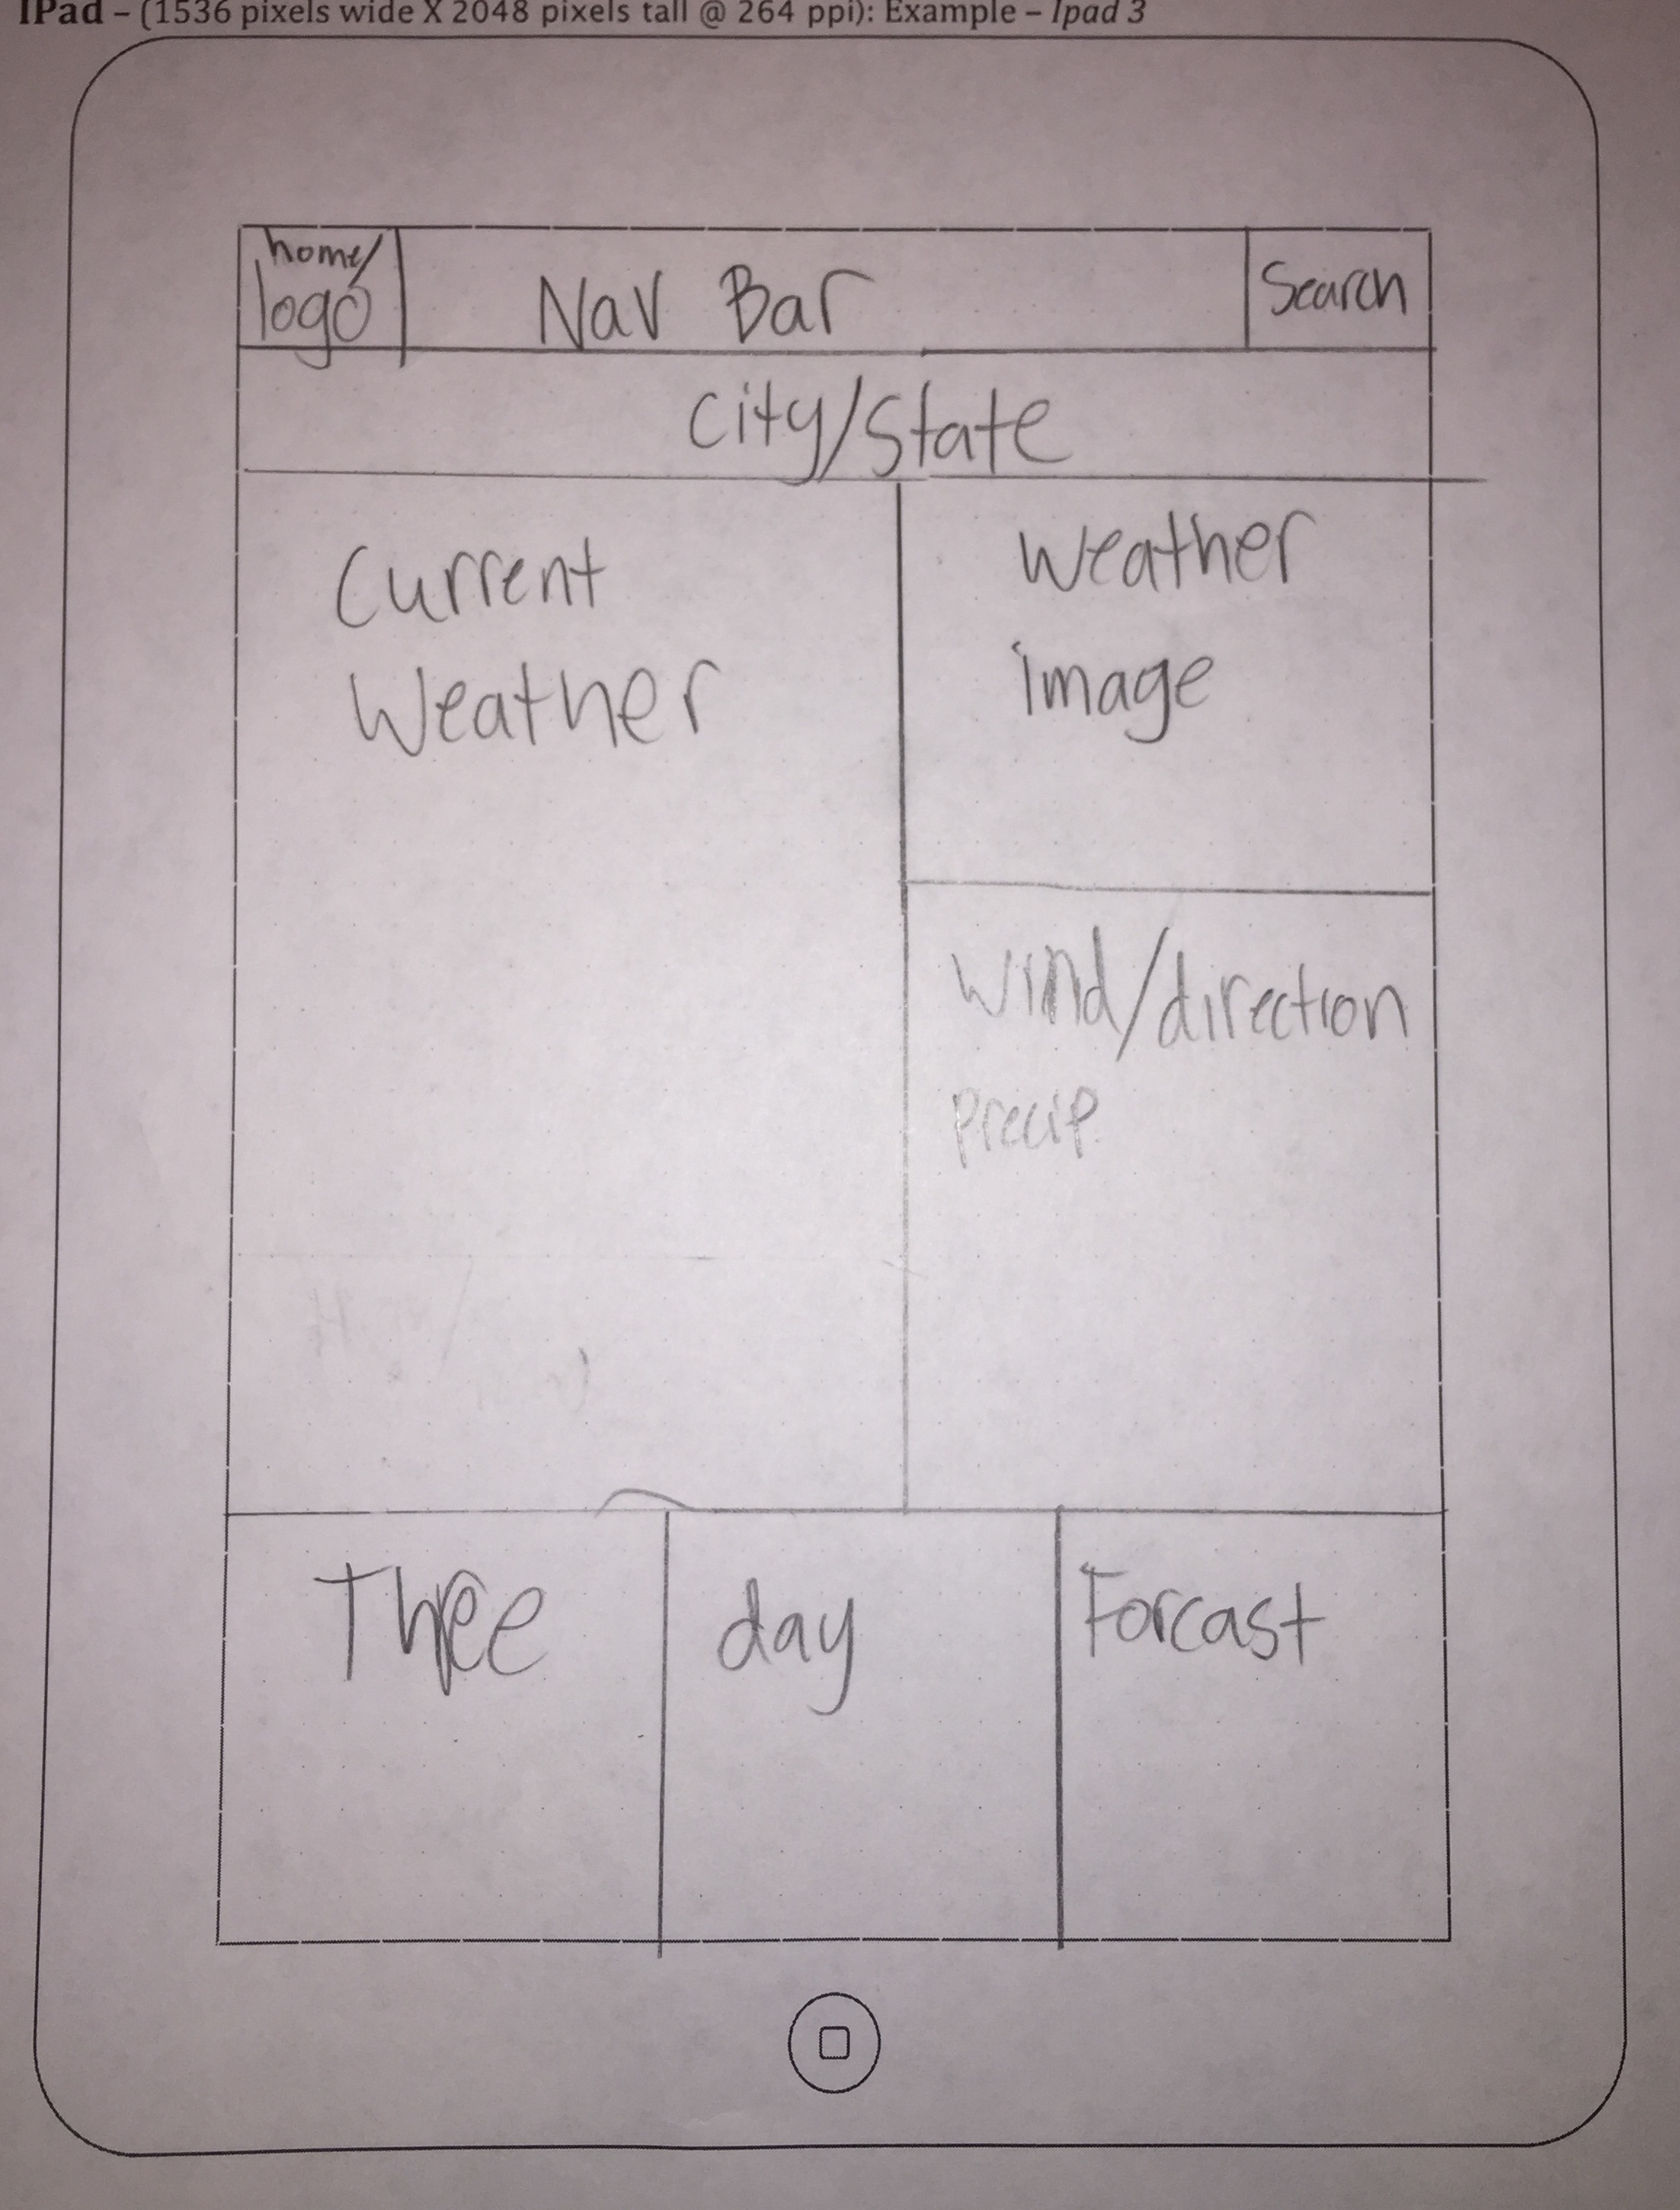 IPad – (1536 pixels wide X 2048 pixels tall @ 264 ppi): Example – Ipad 3
home/
logo
Nav Bar
Search
City/State
Current
Weather
Weather
image
Wind/direction
Precip.
Three
day
Forcast